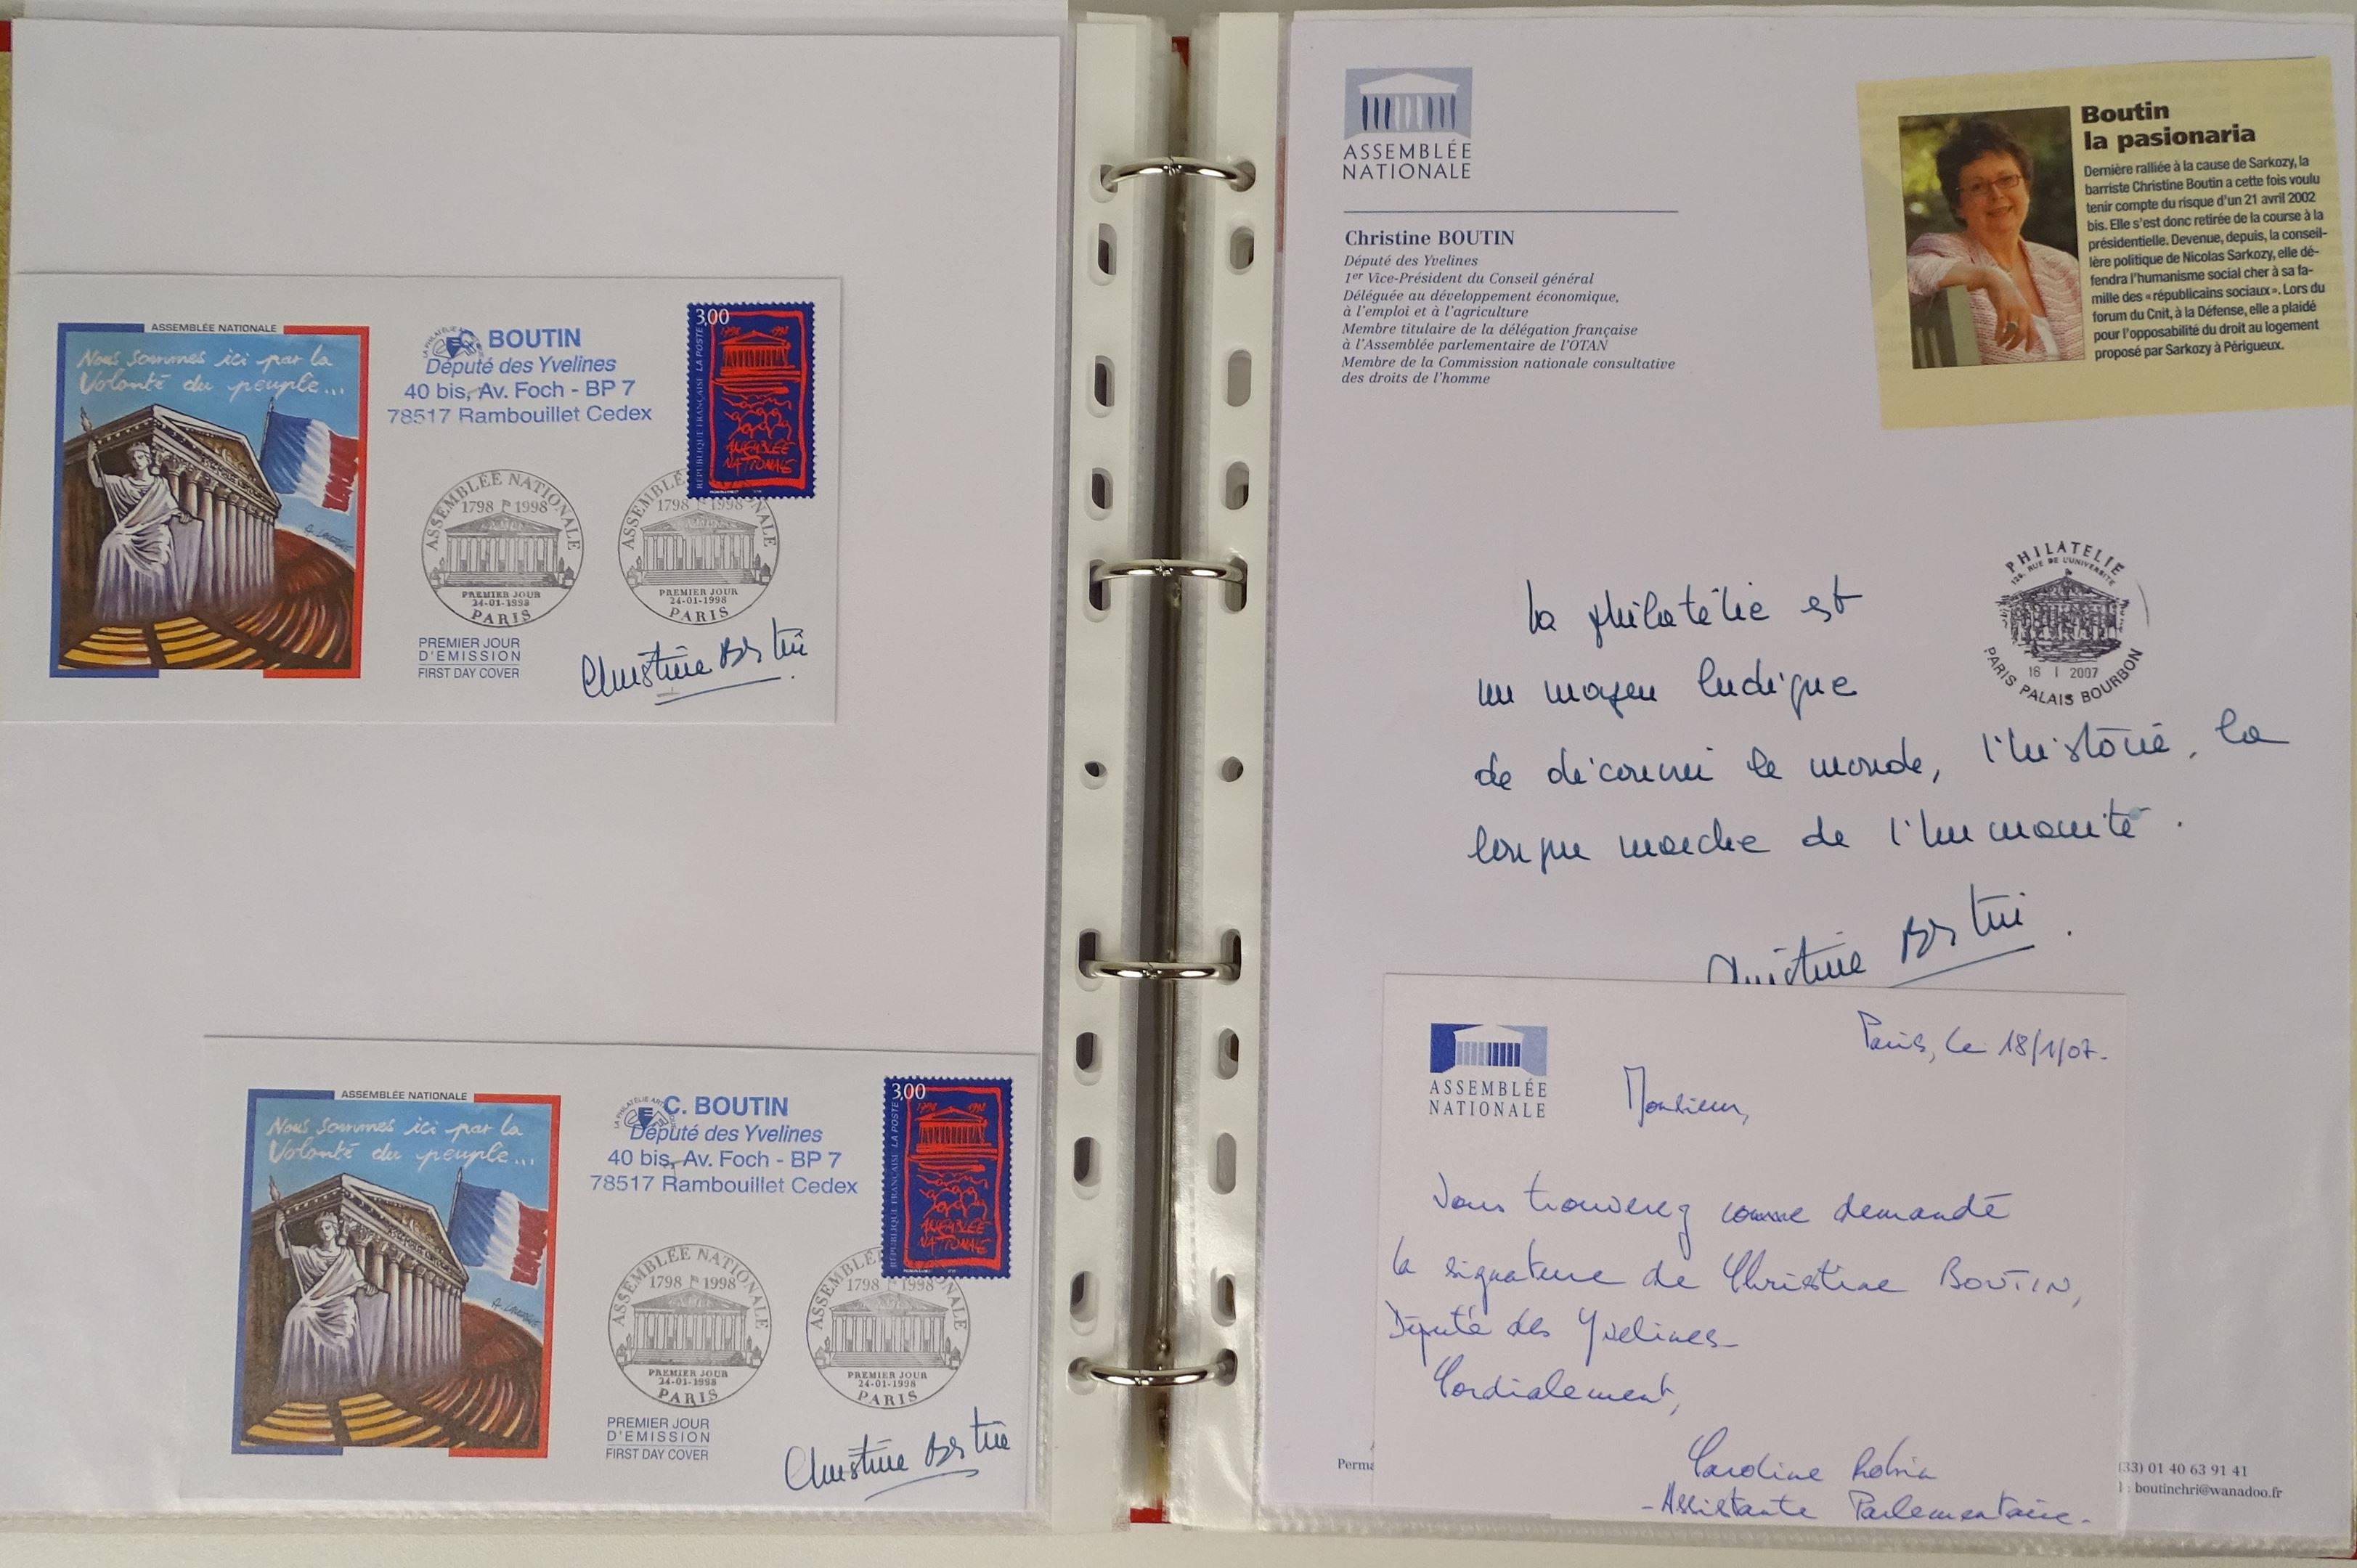 ASSEMBLÉE NATIONALE
Nous sommes ici par la
Volonté du peuple...
BOUTIN
Député des Yvelines
40 bis, Av. Foch - BP 7
78517 Rambouillet Cedex
3,00
1798 1998
RÉPUBLIQUE FRANÇAISE LA POSTE
ASSEMBLÉE
NATIONALE
ASSEMBLÉE NATIONALE
1798 1998
PREMIER JOUR
24-01-1998
PARIS
ASSEMBLÉE NATIONALE
1798 1998
PREMIER JOUR
24-01-1998
PARIS
PREMIER JOUR
D'EMISSION
FIRST DAY COVER
Christine Boutin
ASSEMBLÉE NATIONALE
Nous sommes ici par la
Volonté du peuple...
C. BOUTIN
Député des Yvelines
40 bis, Av. Foch - BP 7
78517 Rambouillet Cedex
3,00
1798 1998
RÉPUBLIQUE FRANÇAISE LA POSTE
ASSEMBLÉE
NATIONALE
ASSEMBLÉE NATIONALE
1798 1998
PREMIER JOUR
24-01-1998
PARIS
ASSEMBLÉE NATIONALE
1798 1998
PREMIER JOUR
24-01-1998
PARIS
PREMIER JOUR
D'EMISSION
FIRST DAY COVER
Christine Boutin
ASSEMBLÉE
NATIONALE
Christine BOUTIN
Député des Yvelines
1er Vice-Président du Conseil général
Déléguée au développement économique,
à l'emploi et à l'agriculture
Membre titulaire de la délégation française
à l'Assemblée parlementaire de l'OTAN
Membre de la Commission nationale consultative
des droits de l'homme
Boutin
la pasionaria
Dernière ralliée à la cause de Sarkozy, la
barriste Christine Boutin a cette fois voulu
tenir compte du risque d'un 21 avril 2002
bis. Elle s'est donc retirée de la course à la
présidentielle. Devenue, depuis, la conseil-
lère politique de Nicolas Sarkozy, elle dé-
fendra l'humanisme social cher à sa fa-
mille des «républicains sociaux». Lors du
forum du Cnit, à la Défense, elle a plaidé
pour l'opposabilité du droit au logement
proposé par Sarkozy à Périgueux.
PHILATELIE
126, RUE DE L'UNIVERSITÉ
18 1 2007
PARIS PALAIS BOURBON
la philatélie est
un moyen ludique
de découvrir le monde, l'histoire, la
longue marche de l'humanité.
Christine Boutin.
ASSEMBLÉE
NATIONALE
Paris, le 18/1/07.
Monsieur,
Vous trouverez comme demandé
la signature de Christine BOUTIN,
Député des Yvelines.
Cordialement,
Caroline
- Assistante Parlementaire.
Perma
(33) 01 40 63 91 41
l : boutinchri@wanadoo.fr